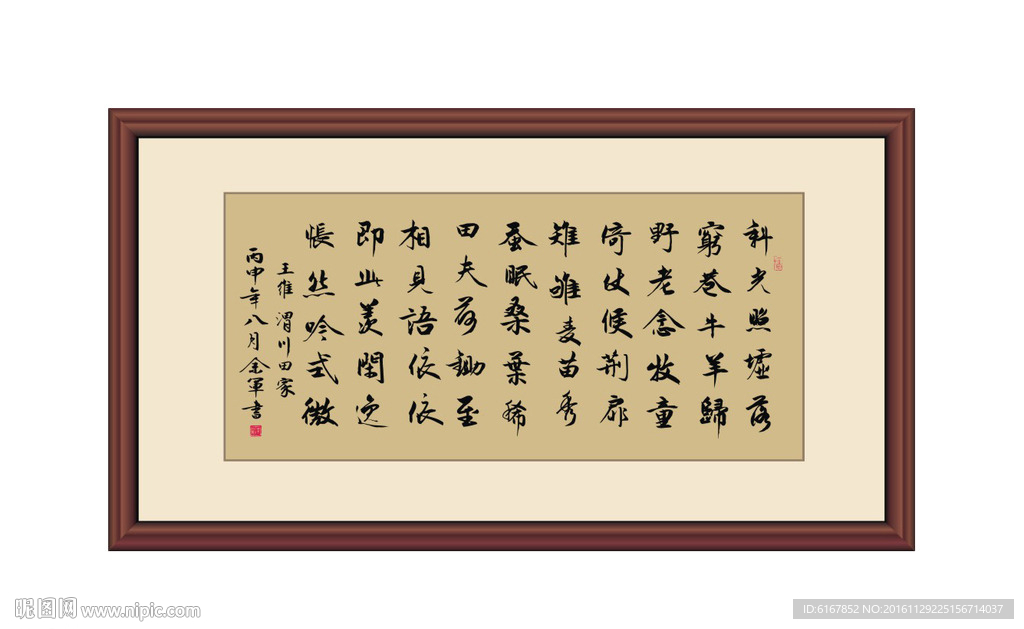 斜光照墟落
窮巷牛羊歸
野老念牧童
倚仗候荆扉
雉雊麦苗秀
蚕眠桑葉稀
田夫荷鋤至
相見語依依
即此羨閑逸
悵然吟式微
王維 渭川田家
丙申年八月金軍書
昵图网 www.nipic.com
ID:6167852 NO:20161129225156714037